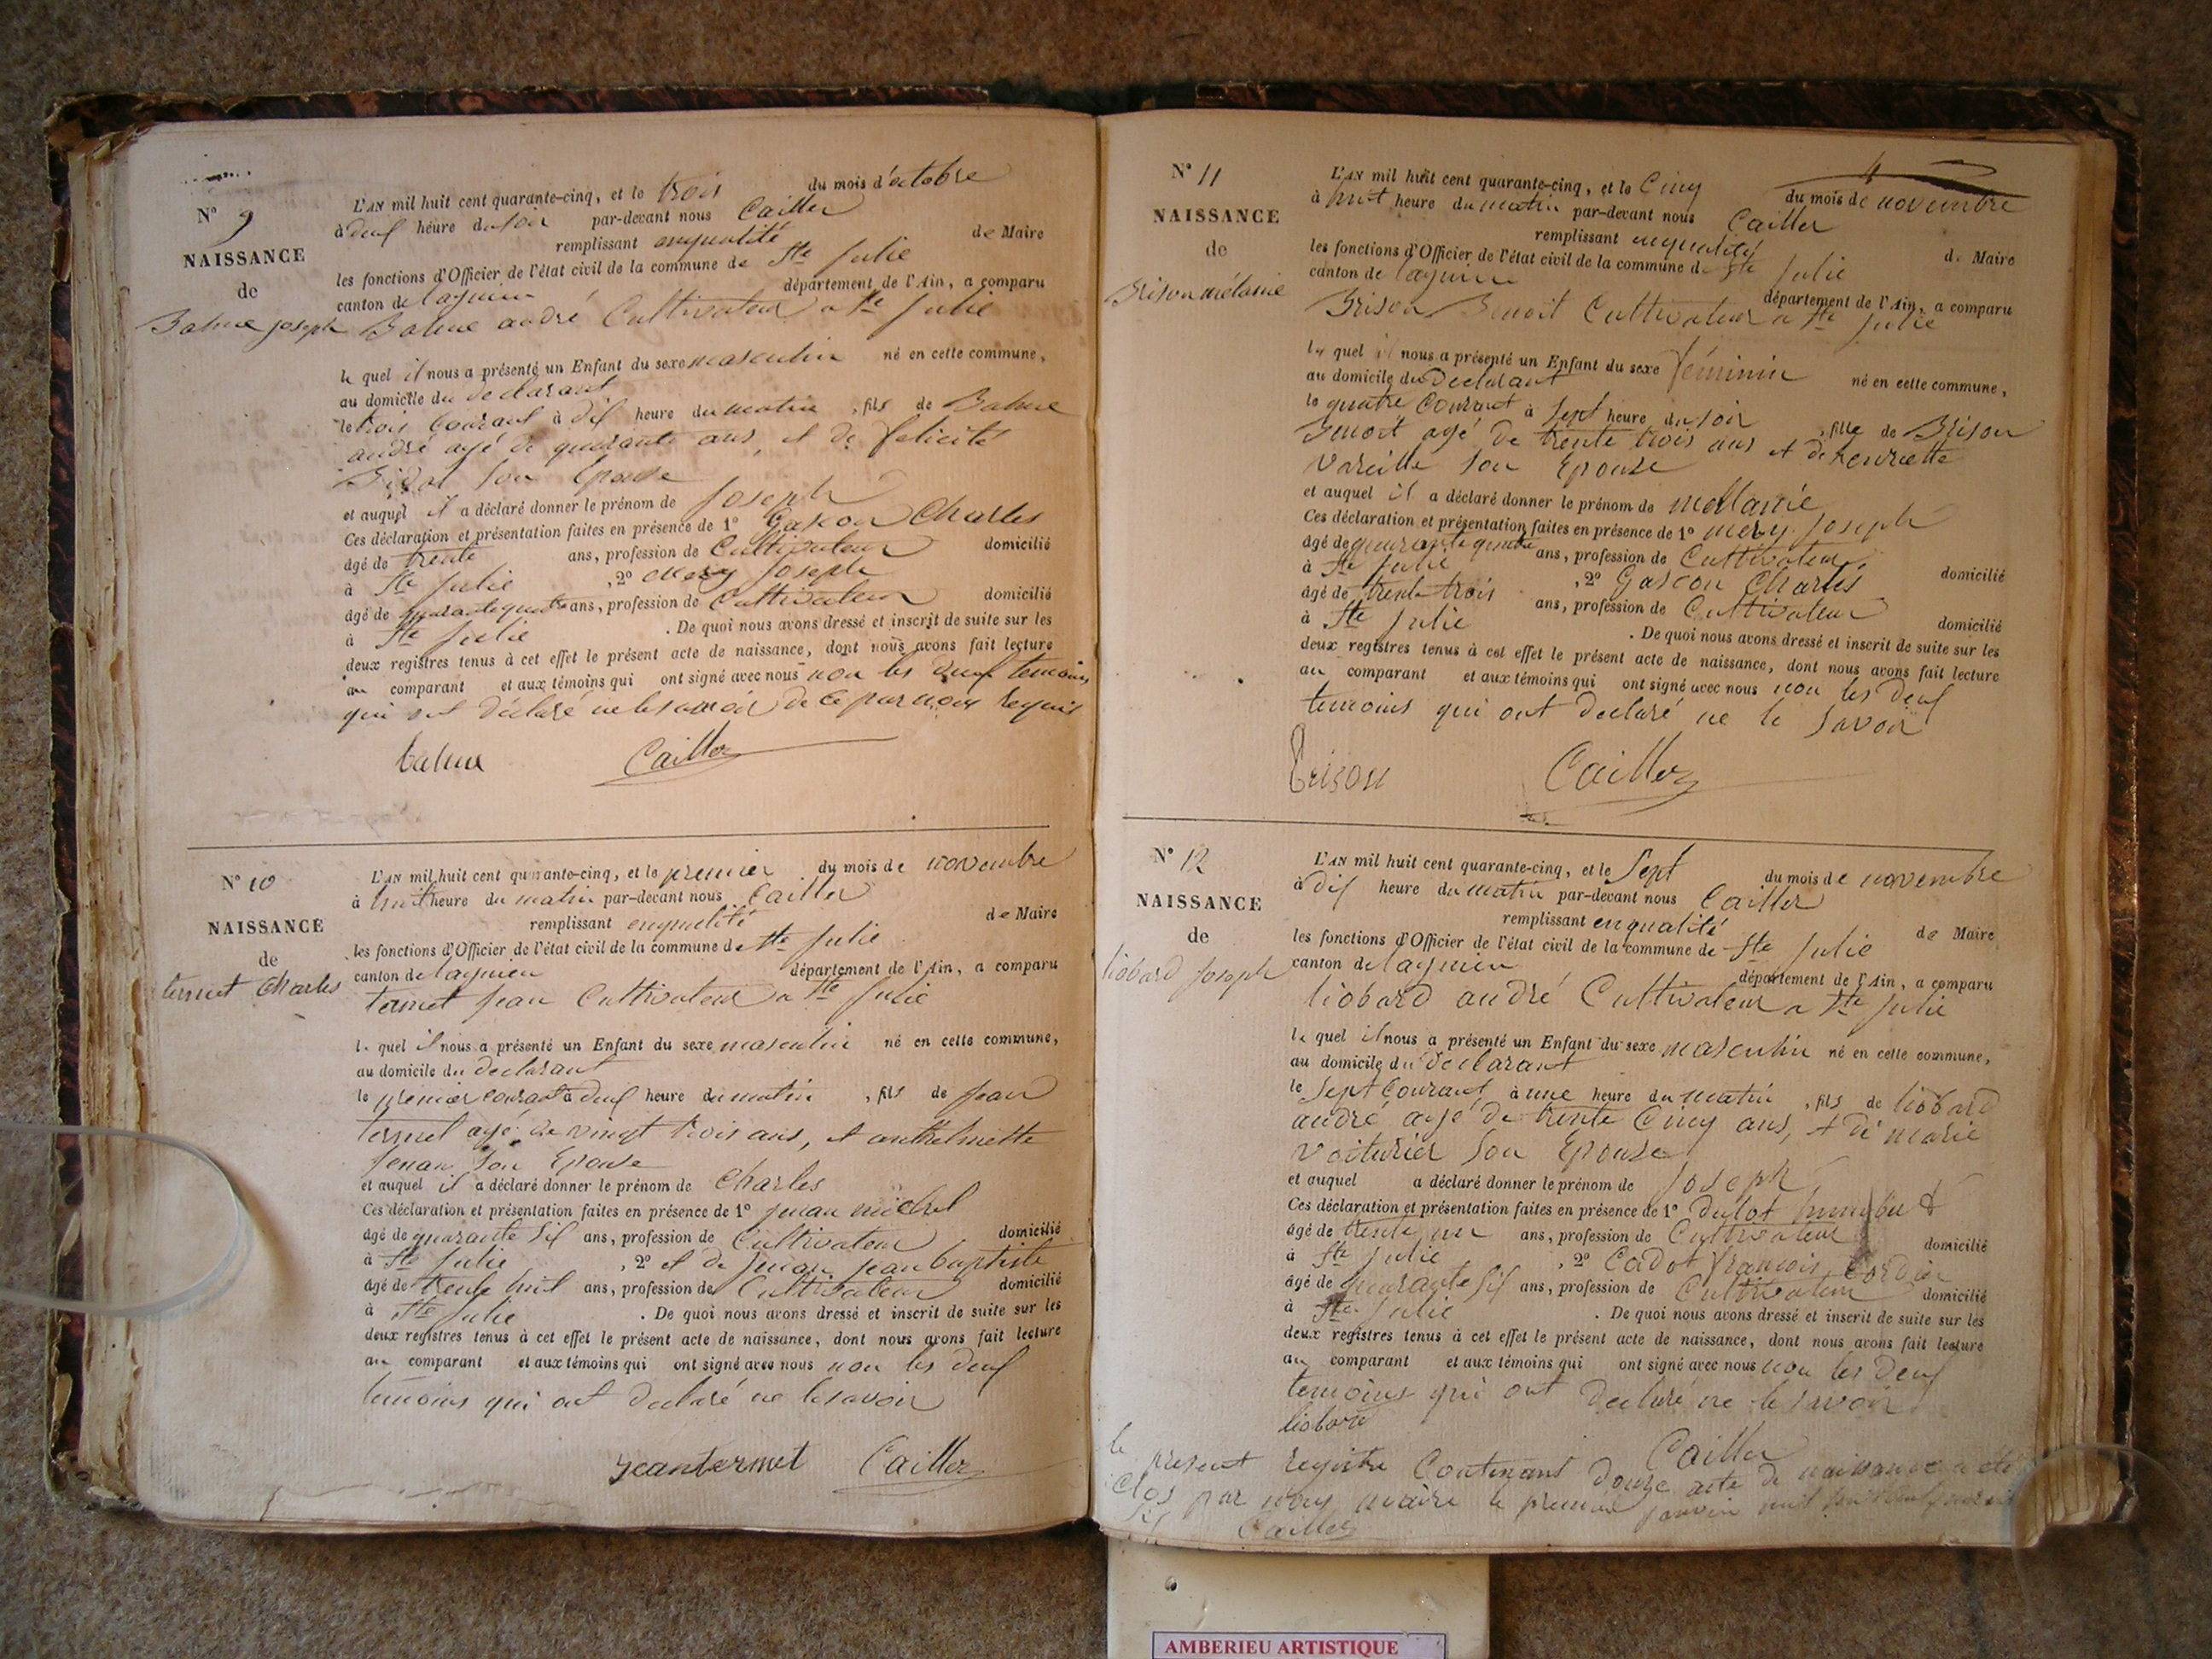 N° 9
NAISSANCE
de
Balme joseph
L'AN mil huit cent quarante-cinq, et le trois du mois d'octobre
à deux heure du soir par-devant nous Cailler
remplissant enqualité de Maire
les fonctions d'Officier de l'état civil de la commune de Ste julie
canton de lagnieu département de l'Ain, a comparu
Balme andré Cultivateur a Ste julie
le quel il nous a présenté un Enfant du sexe masculin né en cette commune,
au domicile du declarant
le trois Courant à dix heure du matin, fils de Balme
andré agé de quarante ans, et de félicité
Bidal son Epouse
et auquel il a déclaré donner le prénom de joseph
Ces déclaration et présentation faites en présence de 1° Gascon Charles
âgé de trente ans, profession de Cultivateur domicilié
à Ste julie, 2° mery joseph
âgé de quarante quatre ans, profession de Cultivateur domicilié
à Ste julie. De quoi nous avons dressé et inscrit de suite sur les
deux registres tenus à cet effet le présent acte de naissance, dont nous avons fait lecture
au comparant et aux témoins qui ont signé avec nous non les deux temoins
qui ont déclaré ne le savoir de ce par nous requis
balme Cailler
N° 10
NAISSANCE
de
termet Charles
L'AN mil huit cent quarante-cinq, et le premier du mois de novembre
à huit heure du matin par-devant nous Cailler
remplissant enqualité de Maire
les fonctions d'Officier de l'état civil de la commune de Ste julie
canton de lagnieu département de l'Ain, a comparu
termet jean Cultivateur a Ste julie
le quel il nous a présenté un Enfant du sexe masculin né en cette commune,
au domicile du declarant
le premier courant à deux heure du matin, fils de jean
termet agé de vingt trois ans, et anthelmette
juenan son Epouse
et auquel il a déclaré donner le prénom de Charles
Ces déclaration et présentation faites en présence de 1° junan michel
âgé de quarante six ans, profession de Cultivateur domicilié
à Ste julie, 2° et de junan jean baptiste
âgé de trente huit ans, profession de Cultivateur domicilié
à Ste julie. De quoi nous avons dressé et inscrit de suite sur les
deux registres tenus à cet effet le présent acte de naissance, dont nous avons fait lecture
au comparant et aux témoins qui ont signé avec nous non les deux
temoins qui ont declaré ne le savoir
jeantermet Cailler
4
N° 11
NAISSANCE
de
Brison mélanie
L'AN mil huit cent quarante-cinq, et le Cinq du mois de novembre
à huit heure du matin par-devant nous Cailler
remplissant enqualité de Maire
les fonctions d'Officier de l'état civil de la commune de Ste julie
canton de lagnieu département de l'Ain, a comparu
Brison Benoit Cultivateur a Ste julie
le quel il nous a présenté un Enfant du sexe féminin né en cette commune,
au domicile du Declarant
le quatre Courant à sept heure du soir, fille de Brison
Benoit agé de trente trois ans et de henriette
Vareille son Epouse
et auquel il a déclaré donner le prénom de mellanie
Ces déclaration et présentation faites en présence de 1° mery joseph
âgé de quarante quatre ans, profession de Cultivateur domicilié
à Ste julie, 2° Gascon Charles
âgé de trente trois ans, profession de Cultivateur domicilié
à Ste julie. De quoi nous avons dressé et inscrit de suite sur les
deux registres tenus à cet effet le présent acte de naissance, dont nous avons fait lecture
au comparant et aux témoins qui ont signé avec nous non les deux
temoins qui ont declaré ne le savoir
brison Cailler
N° 12
NAISSANCE
de
liobard joseph
L'AN mil huit cent quarante-cinq, et le sept du mois de novembre
à dix heure du matin par-devant nous Cailler
remplissant enqualité de Maire
les fonctions d'Officier de l'état civil de la commune de Ste julie
canton de lagnieu département de l'Ain, a comparu
liobard andré Cultivateur a Ste julie
le quel il nous a présenté un Enfant du sexe masculin né en cette commune,
au domicile du declarant
le sept Courant à une heure du matin, fils de liobard
andré agé de trente Cinq ans, et de marie
voiturier son Epouse
et auquel a déclaré donner le prénom de joseph
Ces déclaration et présentation faites en présence de 1° dulot
âgé de trente un ans, profession de Cultivateur domicilié
à Ste julie, 2° Cadot françois Cordier
âgé de quarante six ans, profession de Cultivateur domicilié
à Ste julie. De quoi nous avons dressé et inscrit de suite sur les
deux registres tenus à cet effet le présent acte de naissance, dont nous avons fait lecture
au comparant et aux témoins qui ont signé avec nous non les deux
temoins qui ont declaré ne le savoir
liobard Cailler
le present registre Contenant douze acte de naissance a eté
clos par nous maire le premier janvier mil huit cent quarante
six Cailler
AMBERIEU ARTISTIQUE